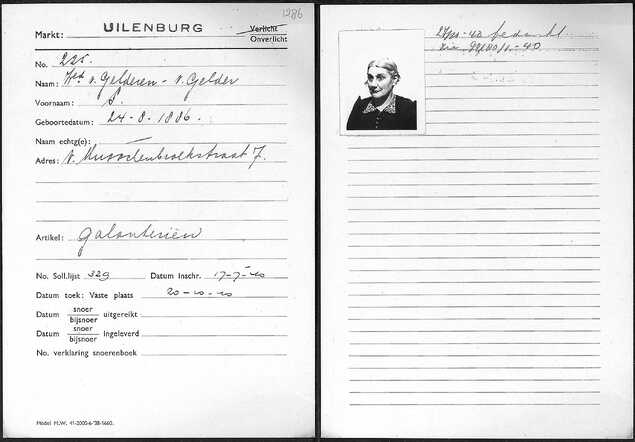 1286
Markt: UILENBURG Verlicht
Onverlicht
No. 225.
Naam: Wed v. Gelderen - v. Gelder
Voornaam: S.
Geboortedatum: 24-8-1886.
Naam echtg(e):
Adres: v. Musschenbroekstraat 7.
Artikel: galanteriën
No. Soll.lijst 329 Datum Inschr. 17-7-40
Datum toek: Vaste plaats 20-10-40
Datum snoer/bijsnoer uitgereikt
Datum snoer/bijsnoer ingeleverd
No. verklaring snoerenboek
Model M.W. 41-2000-6-'38-1660.